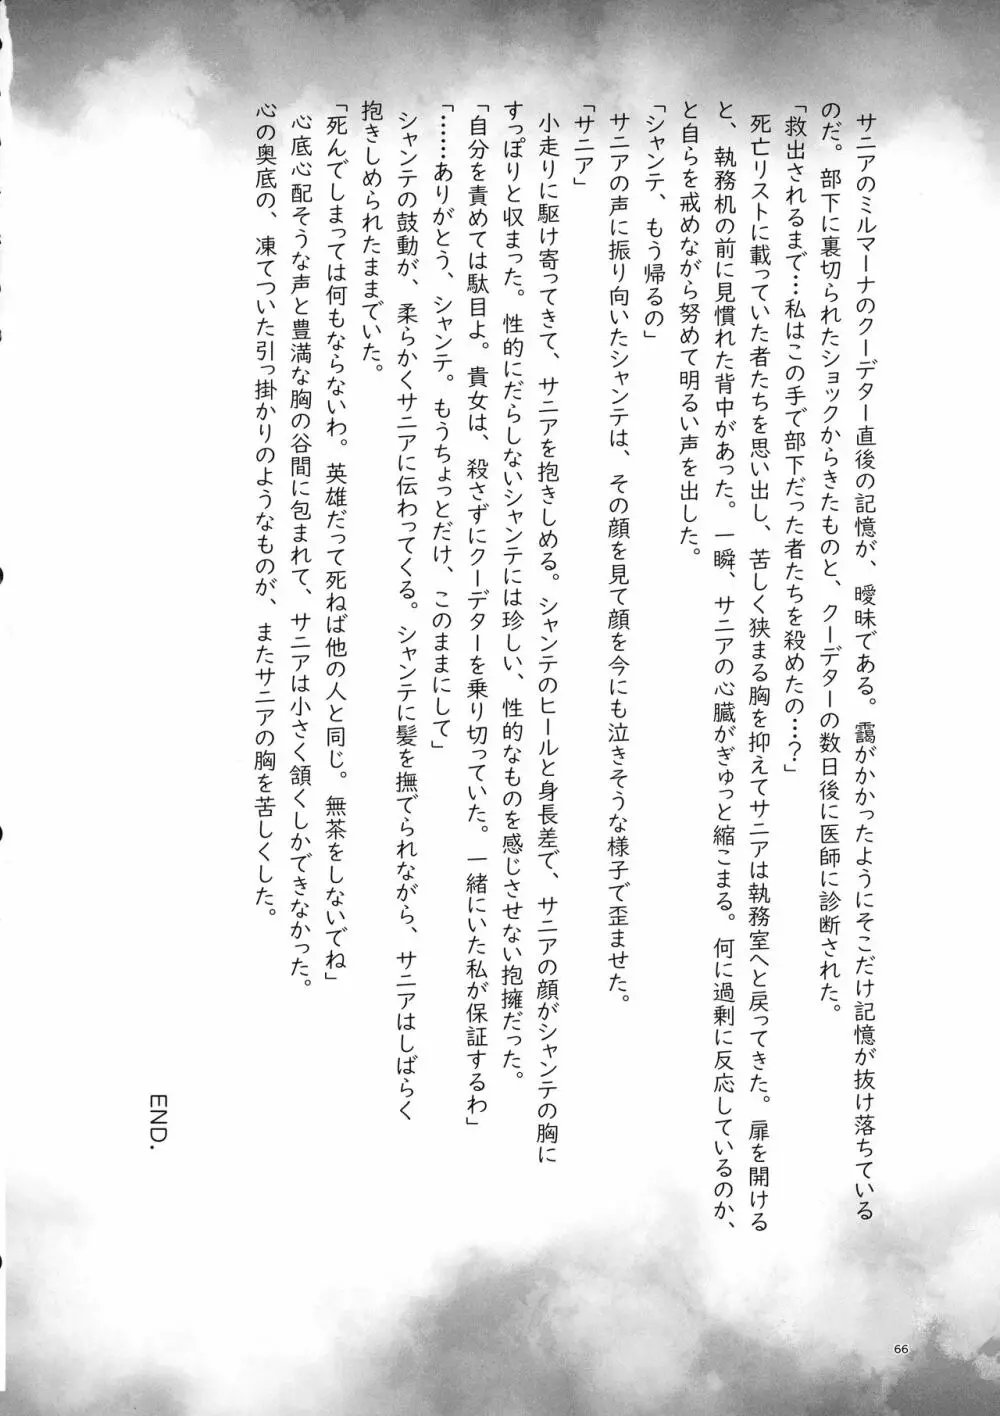 サニアのミルマーナのクーデター直後の記憶が、曖昧である。靄がかかったようにそこだけ記憶が抜け落ちている
のだ。部下に裏切られたショックからきたものと、クーデターの数日後に医師に診断された。
「救出されるまで…私はこの手で部下だった者たちを殺めたの…？」
死亡リストに載っていた者たちを思い出し、苦しく狭まる胸を抑えてサニアは執務室へと戻ってきた。扉を開ける
と、執務机の前に見慣れた背中があった。一瞬、サニアの心臓がぎゅっと縮こまる。何に過剰に反応しているのか、
と自らを戒めながら努めて明るい声を出した。
「シャンテ、もう帰るの」
サニアの声に振り向いたシャンテは、その顔を見て顔を今にも泣きそうな様子で歪ませた。
「サニア」
小走りに駆け寄ってきて、サニアを抱きしめる。シャンテのヒールと身長差で、サニアの顔がシャンテの胸に
すっぽりと収まった。性的にだらしないシャンテには珍しい、性的なものを感じさせない抱擁だった。
「自分を責めては駄目よ。貴女は、殺さずにクーデターを乗り切っていた。一緒にいた私が保証するわ」
「……ありがとう、シャンテ。もうちょっとだけ、このままにして」
シャンテの鼓動が、柔らかくサニアに伝わってくる。シャンテに髪を撫でられながら、サニアはしばらく
抱きしめられたままでいた。
「死んでしまっては何もならないわ。英雄だって死ねば他の人と同じ。無茶をしないでね」
心底心配そうな声と豊満な胸の谷間に包まれて、サニアは小さく頷くしかできなかった。
心の奥底の、凍てついた引っ掛かりのようなものが、またサニアの胸を苦しくした。
END.
66